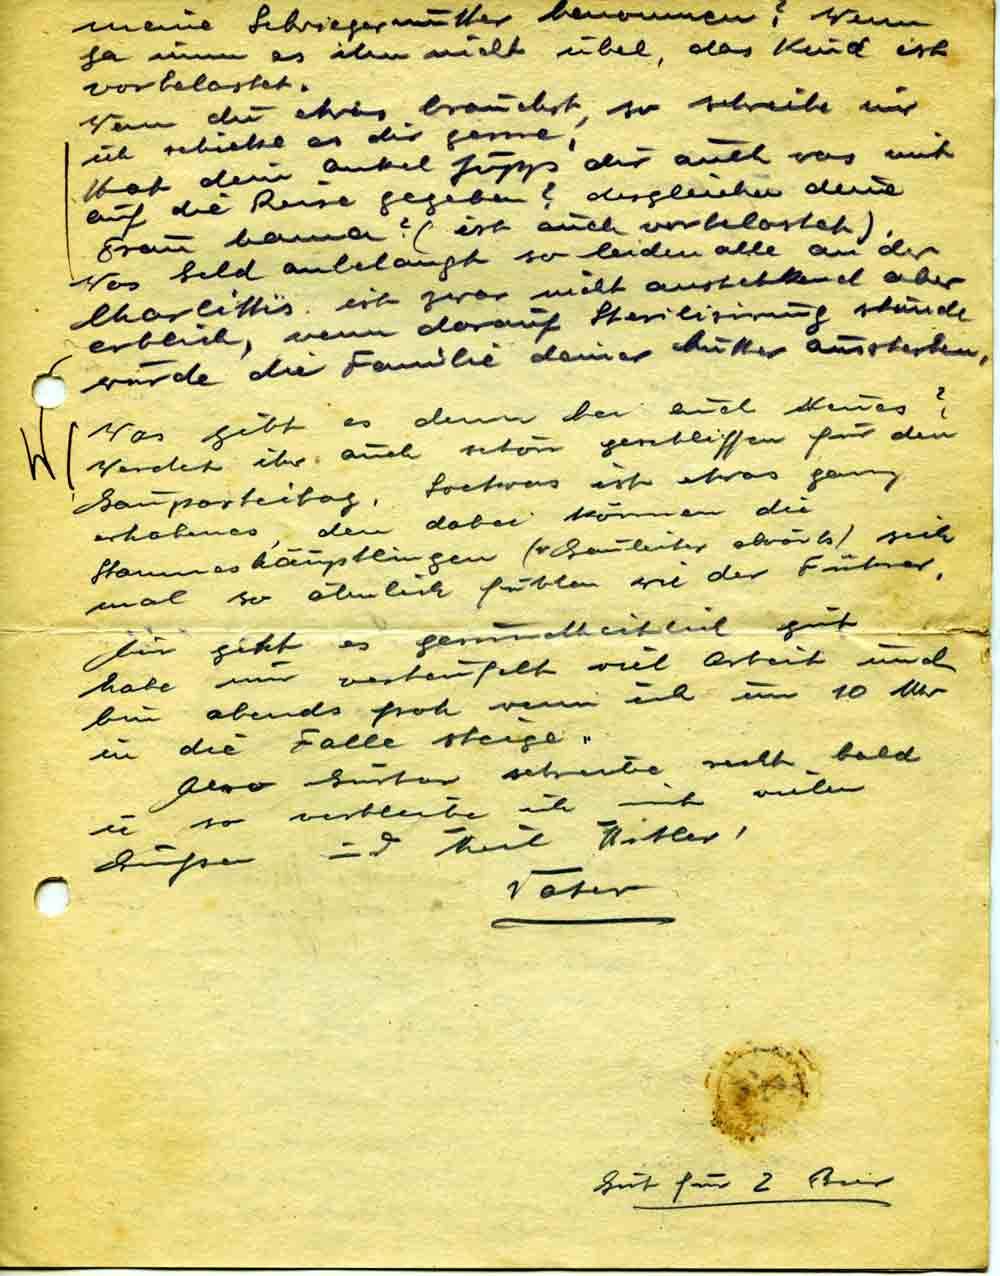 meine Schwiegermutter benommen? Wenn
ja nimm es ihm nicht übel, das Kind ist
vorbelastet.
Wenn du etwas brauchst, so schreibe mir
ich schicke es dir gerne,
Hat dein onkel Jupp dir auch was mit
auf die Reise gegeben? desgleichen deine
Frau (ist auch vorbelastet).
Was Geld anbelangt so leiden alle an der
ist zwar nicht ansteckend aber
erblich, wenn darauf Sterilisirung stünde
würde die Familie deiner Mutter aussterben.
Was gibt es denn bei euch Neues?
Werdet ihr auch schön geschliffen für den
Gauparteitag. Soetwas ist etwas ganz
erhabenes, den dabei können die
Stammeshäuptlingen (v Gauleiter abwärts) sich
mal so ähnlich fühlen wie der Führer.
Mir geht es gesundheitlich gut
habe nur verteufelt viel Arbeit und
bin abends froh wenn ich um 10 Uhr
in die Falle steige.
Also Gustav schreibe recht bald
u so verbleibe ich mit vielen
Grüßen und Heil Hitler!
Vater
Gut für 2 Bier